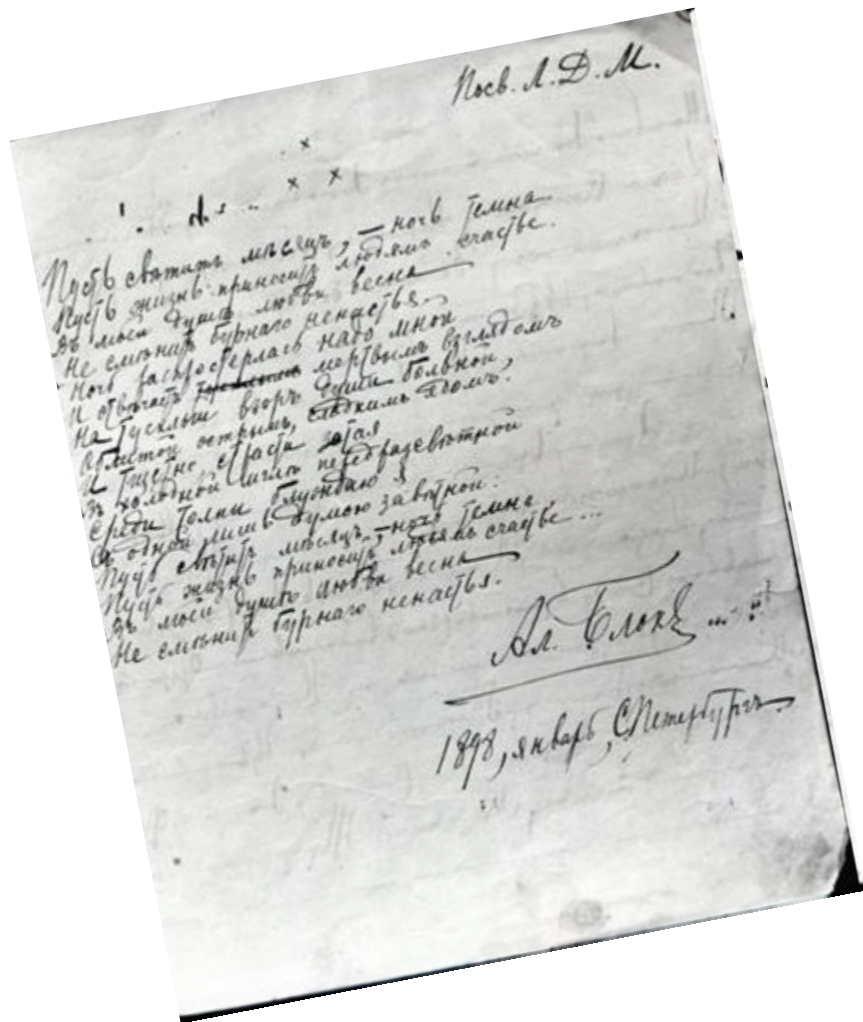 Посв. Л. Д. М.
х
х х
Пусть свѣтитъ мѣсяцъ, — ночь темна
Пусть жизнь приноситъ людямъ счастье.
Въ моей душѣ любви весна
Не смѣнитъ бурнаго ненастья.
Ночь распростерлась надо мной
И отвѣчаетъ мертвымъ взглядомъ
На тусклый взоръ души больной,
Облитой острымъ, сладкимъ ядомъ.
И тщетно страсти затая
Въ холодной мглѣ передразсвѣтной
Среди толпы блуждаю я
Съ одной лишь думою завѣтной:
Пусть свѣтитъ мѣсяцъ, — ночь темна,
Пусть жизнь приноситъ людямъ счастье ...
Въ моей душѣ любви весна
Не смѣнитъ бурнаго ненастья.
Ал. Блокъ
1898, январь, С.Петербургъ.